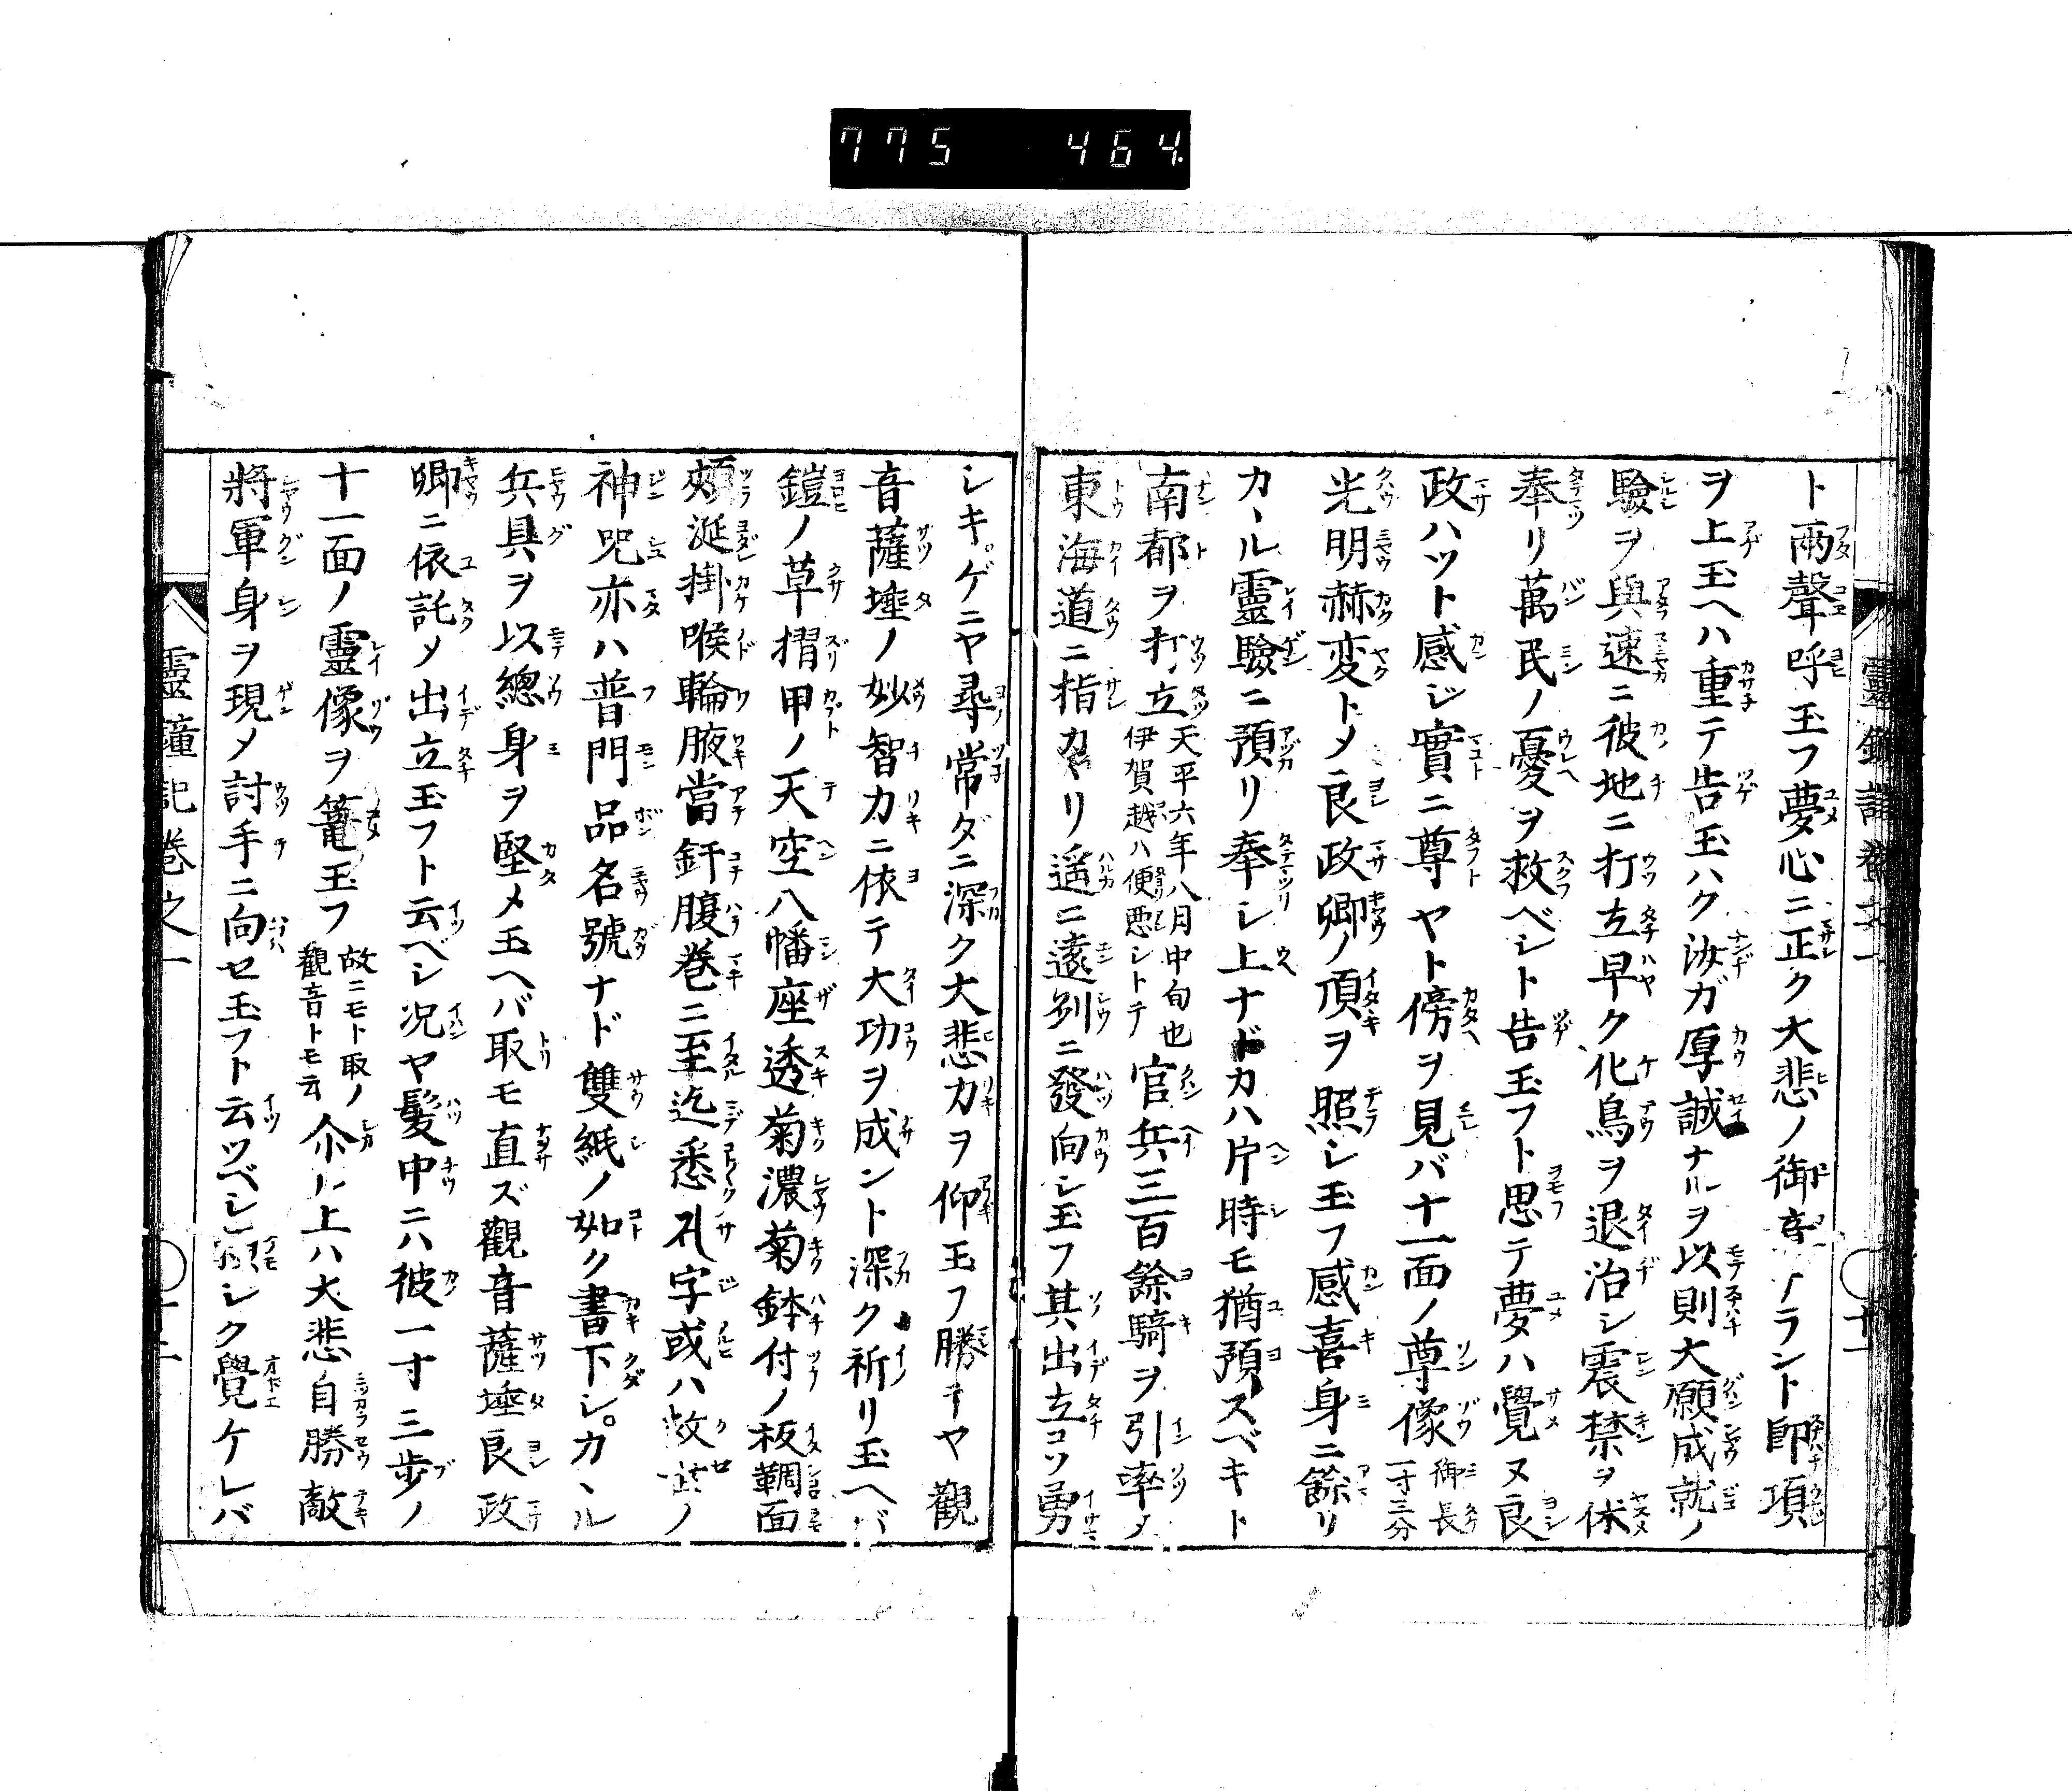 775 464
ト兩聲呼玉フ夢心ニ正ク大悲ノ御音ノラント即項
ヲ上玉ヘハ重テ告玉ハク汝ガ厚誠ナルヲ以則大願成就ノ
驗ヲ與速ニ彼地ニ打立早ク化鳥ヲ退治シ震禁ヲ休
奉リ萬民ノ憂ヲ救ベシト告玉フト思テ夢ハ覺ヌ良
政ハット感ジ實ニ尊ヤト傍ヲ見バ十一面ノ尊像御長一寸三分
光明赫変トメ良政卿ノ頂ヲ照シ玉フ感喜身ニ餘リ
カヽル靈驗ニ預リ奉シ上ナドカハ片時モ猶預スベキト
南都ヲ打立天平六年八月中旬也伊賀越ハ便悪シトテ官兵三百餘騎ヲ引率メ
東海道ニ指カヽリ遥ニ遠州ニ發向シ玉フ其出立コソ勇
シキ。ゲニヤ尋常ダニ深ク大悲力ヲ仰玉フ勝キヤ觀
音薩埵ノ妙智力ニ依テ大功ヲ成ント深ク祈リ玉ヘバ
鎧ノ草摺甲ノ天空八幡座透菊濃菊鉢付ノ板鞆面
頬涎掛喉輪腋當釬腹巻ニ至迄悉𠃵字或ハ救世ノ
神咒亦ハ普門品名號ナド雙紙ノ如ク書下シ。カヽル
兵具ヲ以總身ヲ堅メ玉ヘバ取モ直ズ觀音薩埵良政
卿ニ依託メ出立玉フト云ベシ况ヤ髮中ニハ彼一寸三歩ノ
十一面ノ靈像ヲ篭玉フ故ニモト取ノ觀音トモ云尒ル上ハ大悲自勝敵
將軍身ヲ現メ討手ニ向セ玉フト云ツベシ頼シク覺ケレバ
靈鐘記巻之一
十二